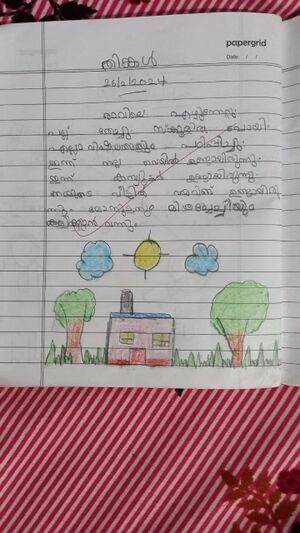 papergrid
Date: / /
തിങ്കൾ
26/2/2024
രാവിലെ എഴുന്നേറ്റു
പല്ല് തേച്ചു. സ്കൂളിൽ പോയി.
എല്ലാ വിഷയങ്ങളും പഠിപ്പിച്ചു.
ഇന്ന് നല്ല വെയിൽ ഉണ്ടായിരുന്നു.
ഇന്ന് കമ്പ്യൂട്ടർ ഉണ്ടായിരുന്നു.
വീട്ടിൽ
കളിക്കാൻ വന്നു.